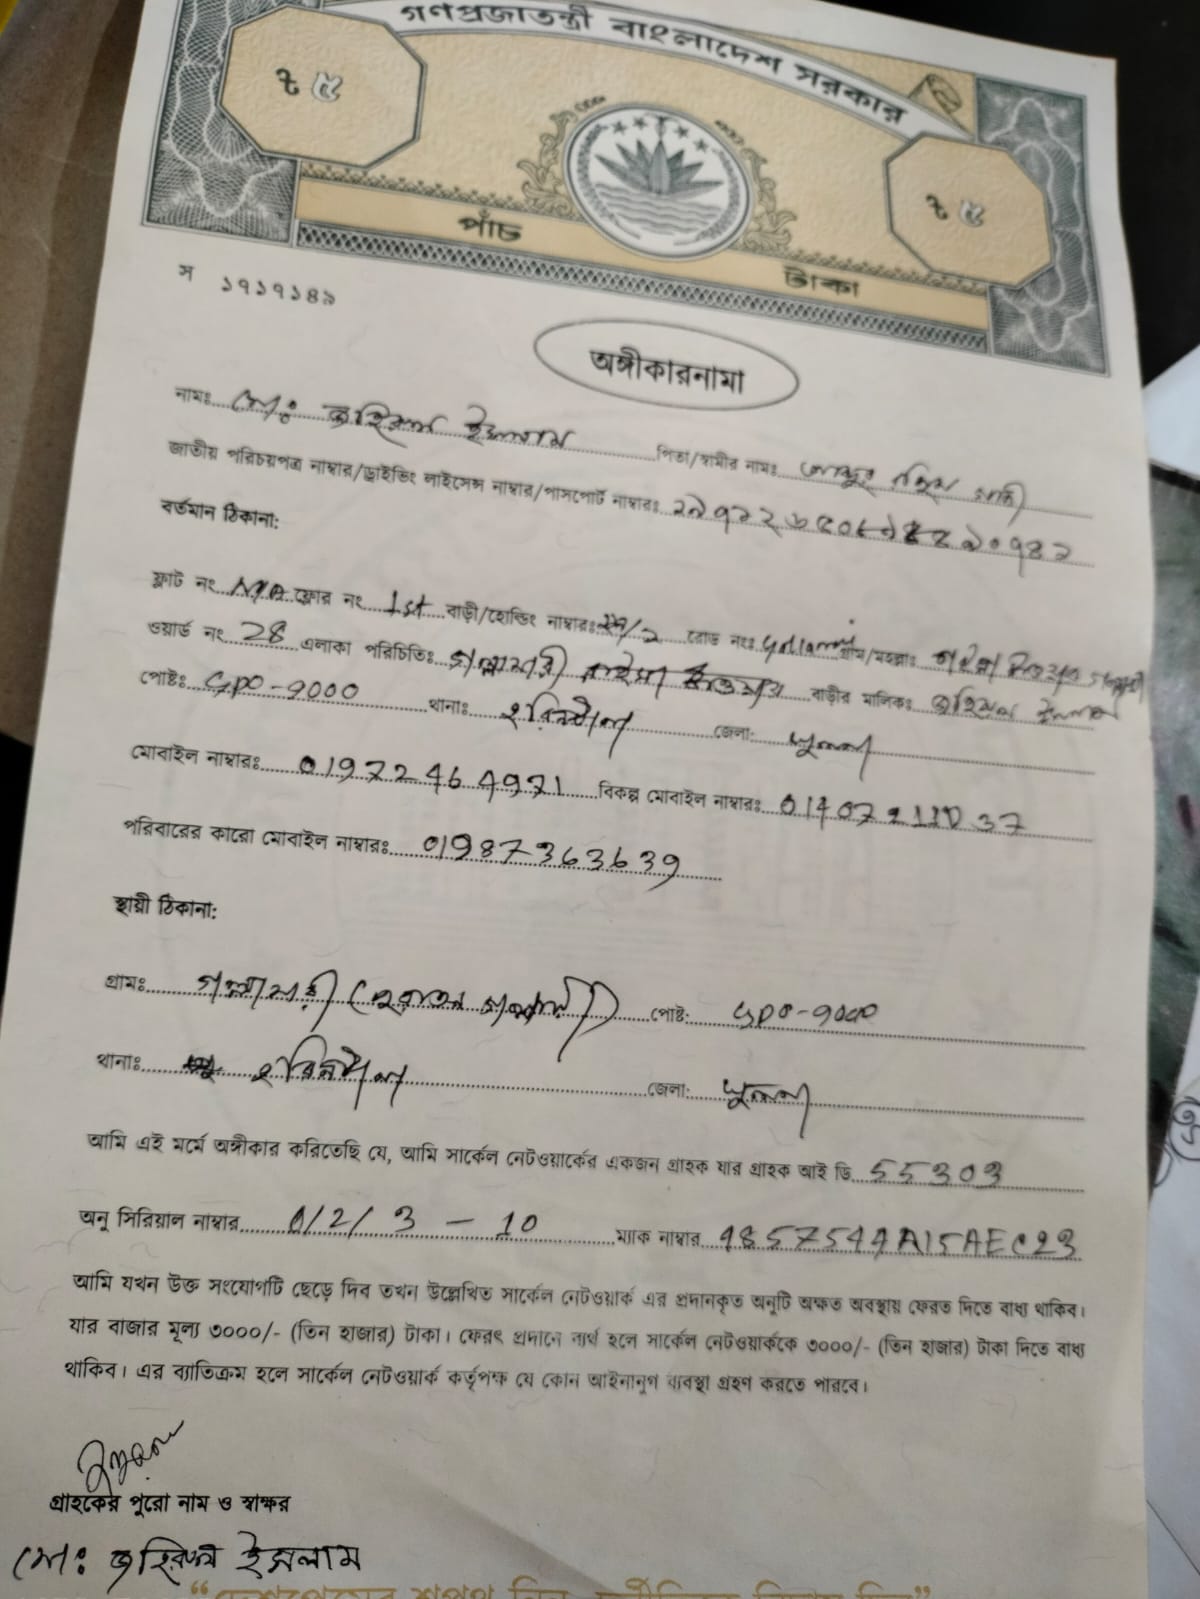 গণপ্রজাতন্ত্রী বাংলাদেশ সরকার
৳ ৫
৳ ৫
পাঁচ
টাকা
স ১৭১৭১৪৯
অঙ্গীকারনামা
নামঃ মোঃ জহিরুল ইসলাম পিতা/স্বামীর নামঃ
জাতীয় পরিচয়পত্র নাম্বার/ড্রাইভিং লাইসেন্স নাম্বার/পাসপোর্ট নাম্বারঃ
বর্তমান ঠিকানা:
ফ্লাট নং N/A ফ্লোর নং 1st বাড়ী/হোল্ডিং নাম্বারঃ রোড নংঃ গ্রাম/মহল্লাঃ
ওয়ার্ড নং 28 এলাকা পরিচিতিঃ গল্লামারী বাড়ীর মালিকঃ জহিরুল ইসলাম
পোষ্টঃ GPO-9000 থানাঃ হরিনটানা জেলা: খুলনা
মোবাইল নাম্বারঃ 01972464971 বিকল্প মোবাইল নাম্বারঃ
পরিবারের কারো মোবাইল নাম্বারঃ 01987363639
স্থায়ী ঠিকানা:
গ্রামঃ গল্লামারী পোষ্ট: GPO-9000
থানাঃ হরিনটানা জেলা: খুলনা
আমি এই মর্মে অঙ্গীকার করিতেছি যে, আমি সার্কেল নেটওয়ার্কের একজন গ্রাহক যার গ্রাহক আই ডি 55303
অনু সিরিয়াল নাম্বার 0/2/3 - 10 ম্যাক নাম্বার 48575444A15AEC23
আমি যখন উক্ত সংযোগটি ছেড়ে দিব তখন উল্লেখিত সার্কেল নেটওয়ার্ক এর প্রদানকৃত অনুটি অক্ষত অবস্থায় ফেরত দিতে বাধ্য থাকিব।
যার বাজার মূল্য ৩০০০/- (তিন হাজার) টাকা। ফেরৎ প্রদানে ব্যর্থ হলে সার্কেল নেটওয়ার্ককে ৩০০০/- (তিন হাজার) টাকা দিতে বাধ্য
থাকিব। এর ব্যাতিক্রম হলে সার্কেল নেটওয়ার্ক কর্তৃপক্ষ যে কোন আইনানুগ ব্যবস্থা গ্রহণ করতে পারবে।
গ্রাহকের পুরো নাম ও স্বাক্ষর
মোঃ জহিরুল ইসলাম